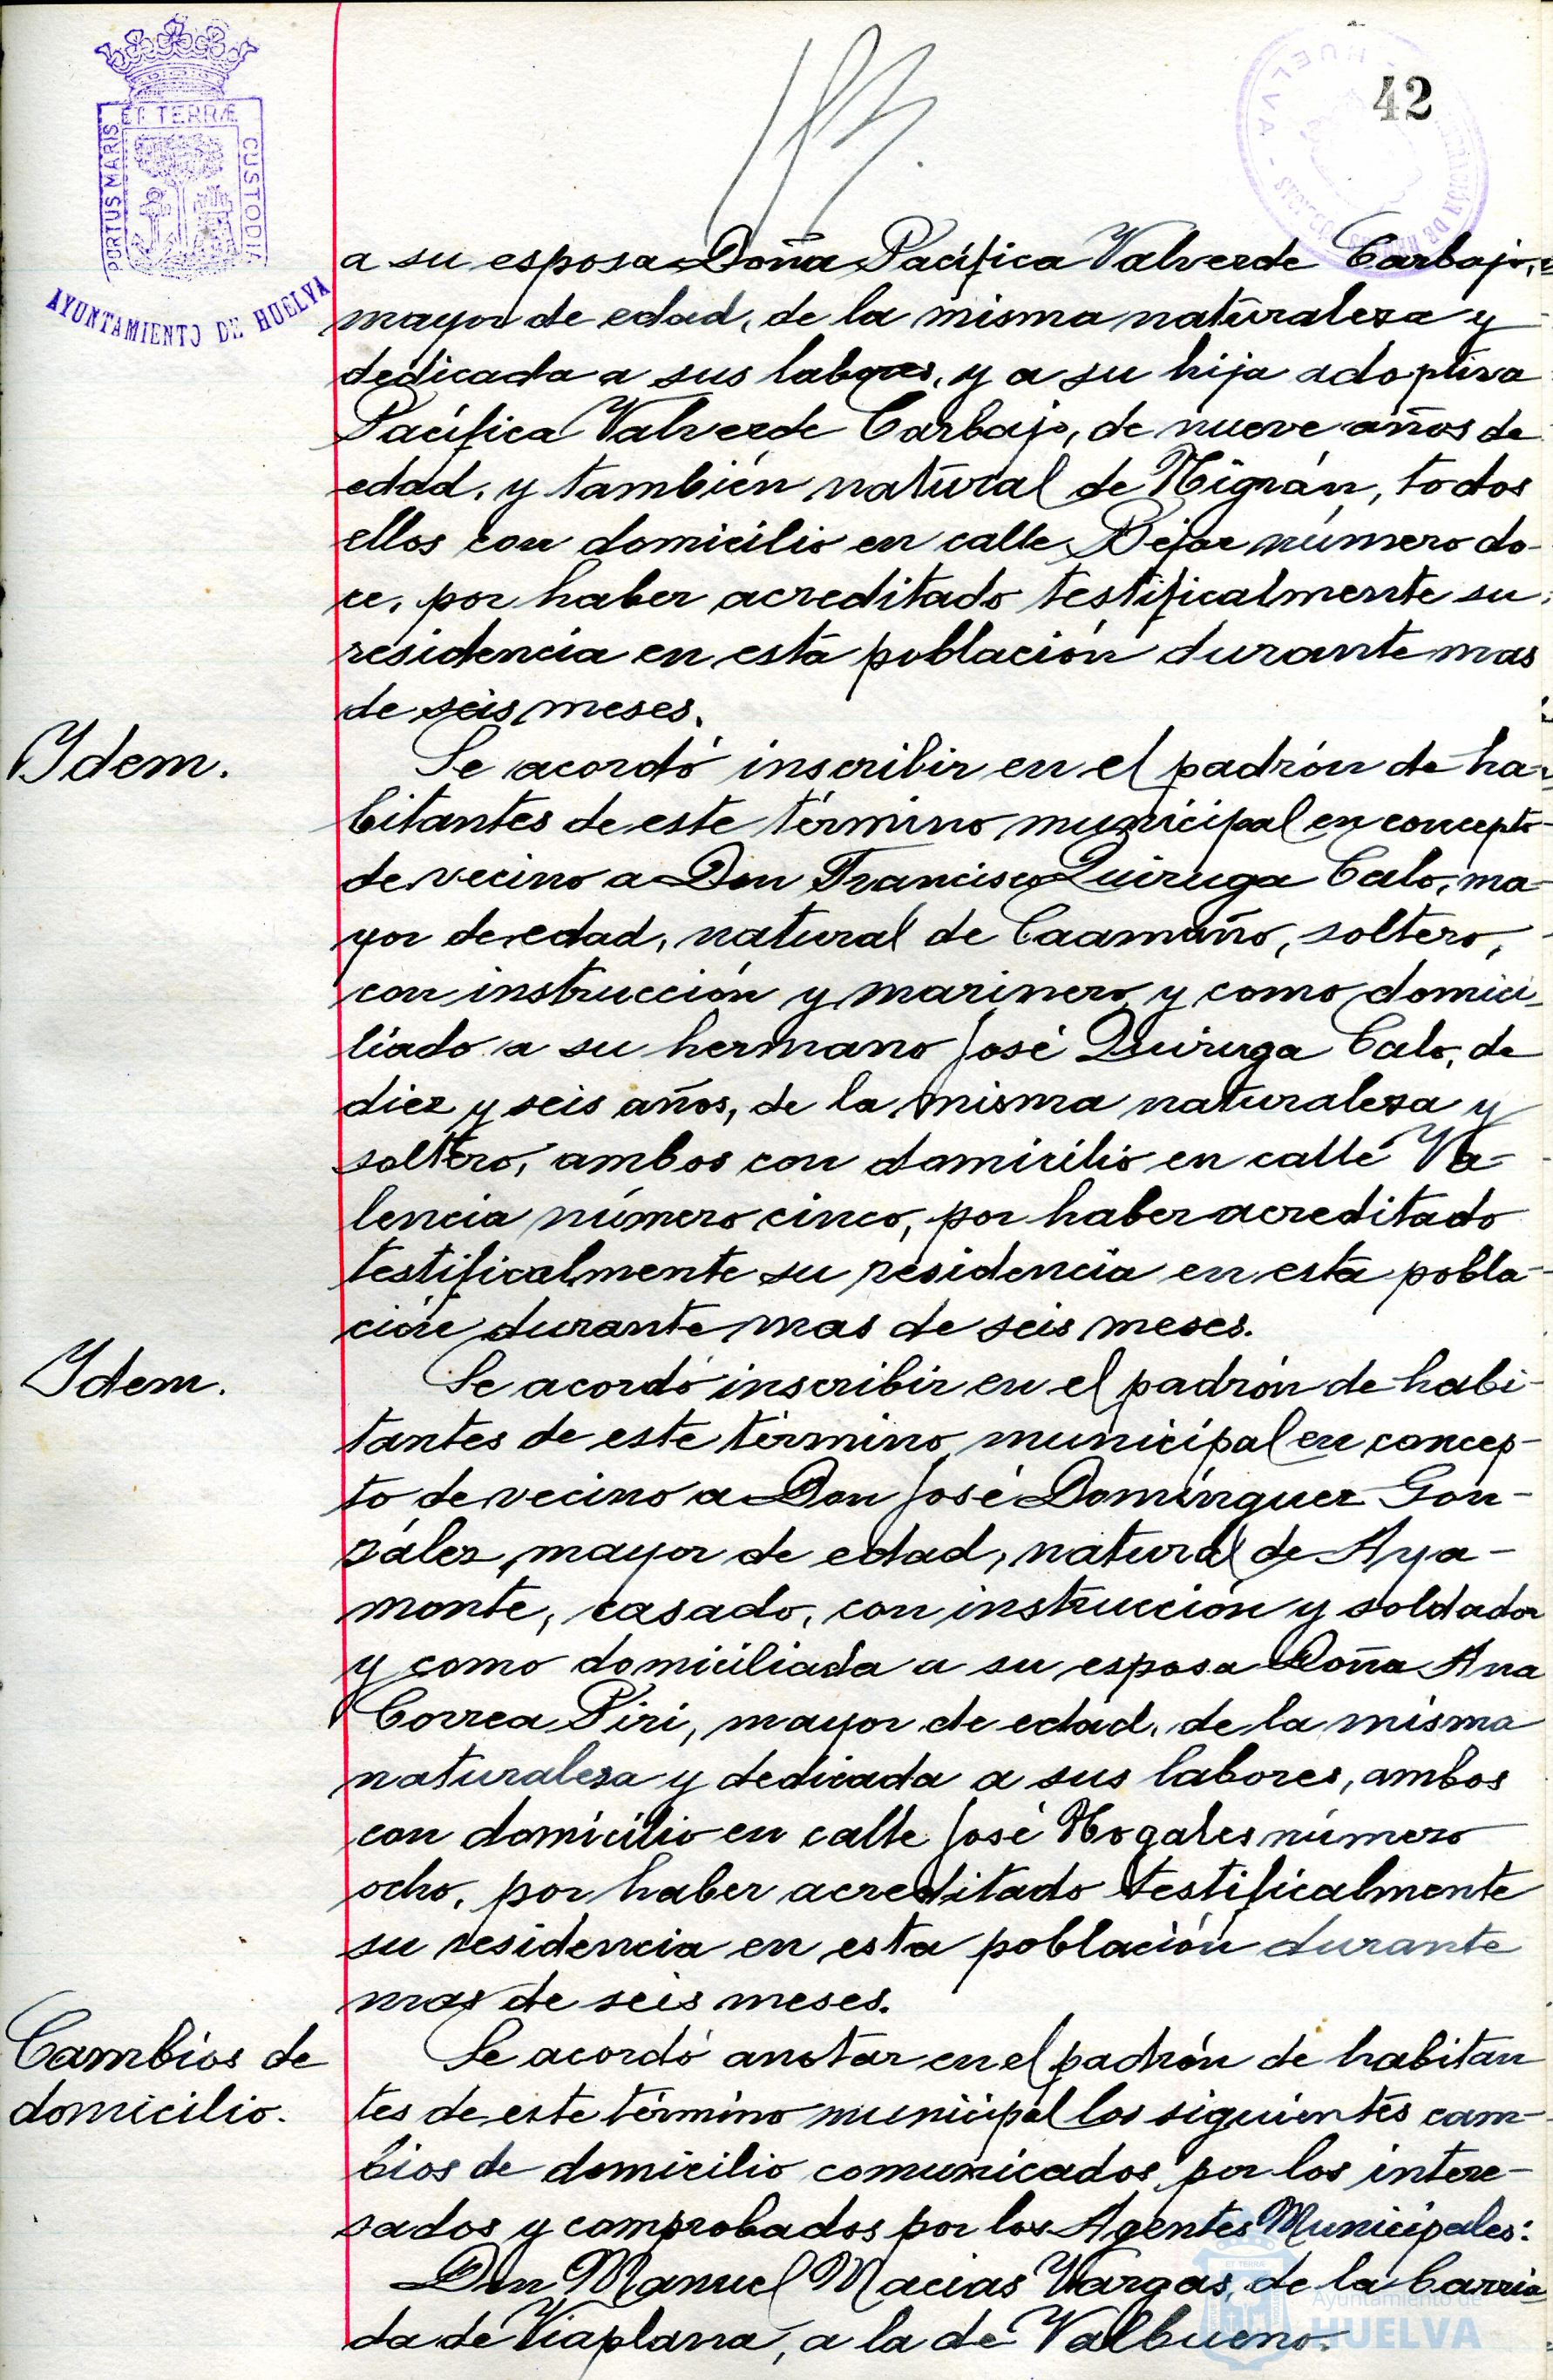 42
ET TERRÆ
PORTUS MARIS
CUSTODIA
AYUNTAMIENTO DE HUELVA
HUELVA
a su esposa Doña Pacífica Valverde Carbajo,
mayor de edad, de la misma naturaleza y
dedicada a sus labores, y a su hija adoptiva
Pacífica Valverde Carbajo, de nueve años de
edad, y también natural de Nigrán, todos
ellos con domicilio en calle Béjar número do-
ce, por haber acreditado testificalmente su
residencia en esta población durante mas
de seis meses.
Idem.
Se acordó inscribir en el padrón de ha-
bitantes de este término municipal en concepto
de vecino a Don Francisco Quiruga Calo, ma-
yor de edad, natural de Caamaño, soltero,
con instrucción y marinero y como domici-
liado a su hermano José Quiruga Calo, de
diez y seis años, de la misma naturaleza y
soltero, ambos con domicilio en calle Va-
lencia número cinco, por haber acreditado
testificalmente su residencia en esta pobla-
ción durante mas de seis meses.
Idem.
Se acordó inscribir en el padrón de habi-
tantes de este término municipal en concep-
to de vecino a Don José Domínguez Gon-
zález, mayor de edad, natural de Aya-
monte, casado, con instrucción y soldador
y como domiciliada a su esposa Doña Ana
Correa Piri, mayor de edad, de la misma
naturaleza y dedicada a sus labores, ambos
con domicilio en calle José Nogales número
ocho, por haber acreditado testificalmente
su residencia en esta población durante
mas de seis meses.
Cambios de
domicilio.
Se acordó anotar en el padrón de habitan
tes de este término municipal los siguientes cam-
bios de domicilio comunicados por los intere-
sados y comprobados por los Agentes Municipales:
Don Manuel Macias Vargas, de la barria
da de Viaplana, a la de Valbueno.
Ayuntamiento de
HUELVA